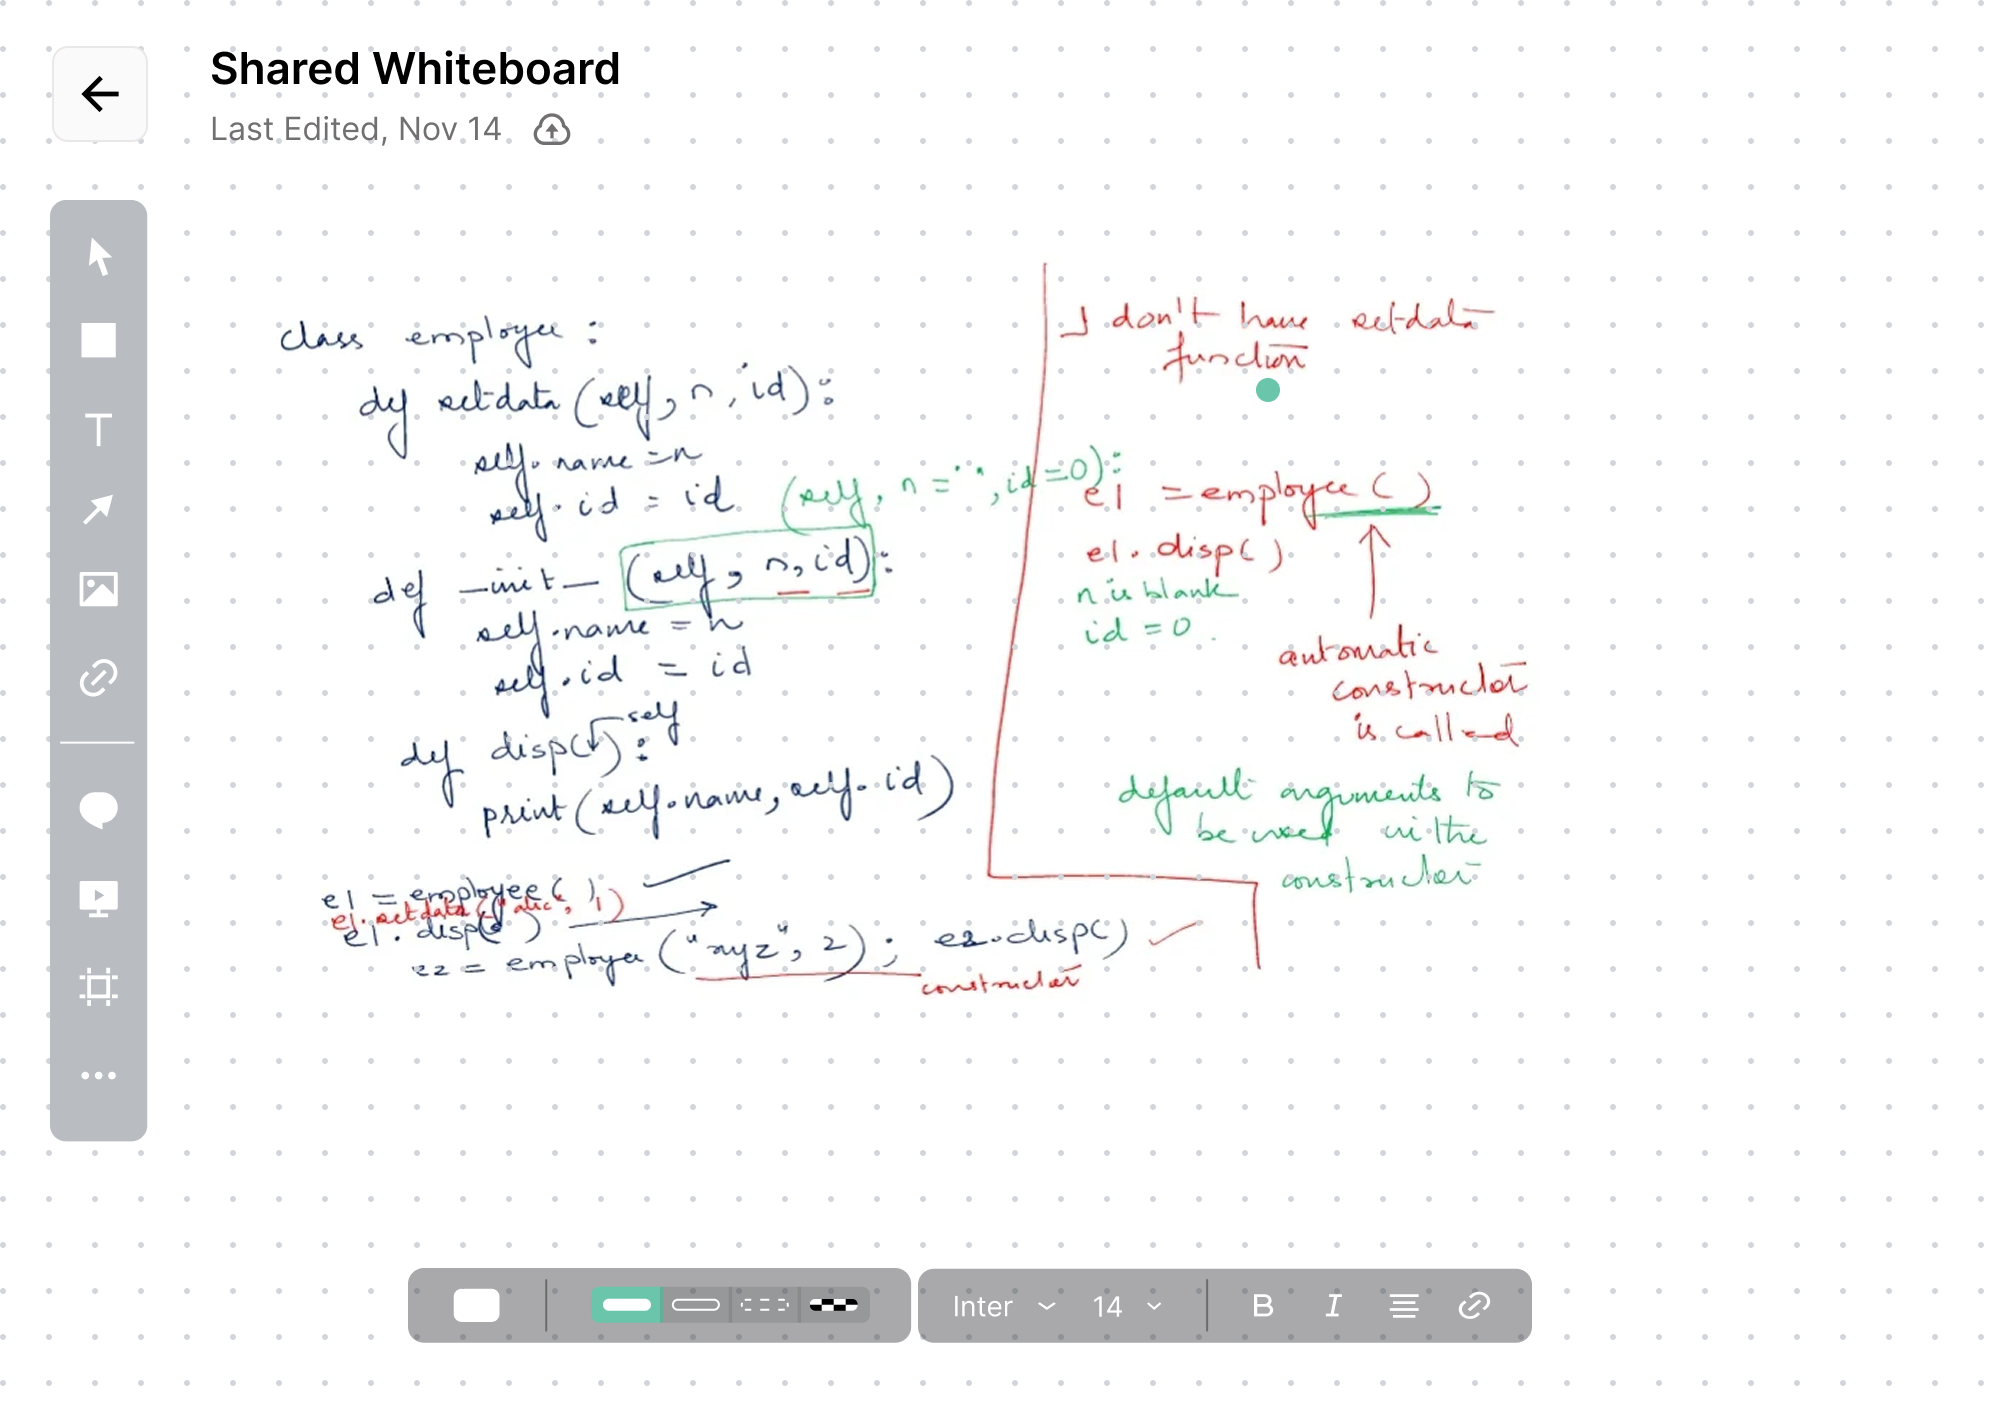 Shared Whiteboard
Last Edited, Nov 14
class employee :
def setdata (self, n, id):
self.name = n
self.id = id
(self, n = "", id=0):
def _init_ (self, n, id):
self.name = n
self.id = id
def disp( ):
self
print(self.name, self.id)
e1 = employee( )
e1.setdata("alic", 1)
e1.disp( )
e2 = employee ("xyz", 2); e2.disp()
constructor
I don't have setdata
function
e1 = employee ( )
e1. disp( )
n is blank
id = 0
automatic
constructor
is called
default arguments to
be used in the
constructor
Inter
14
B
I
T